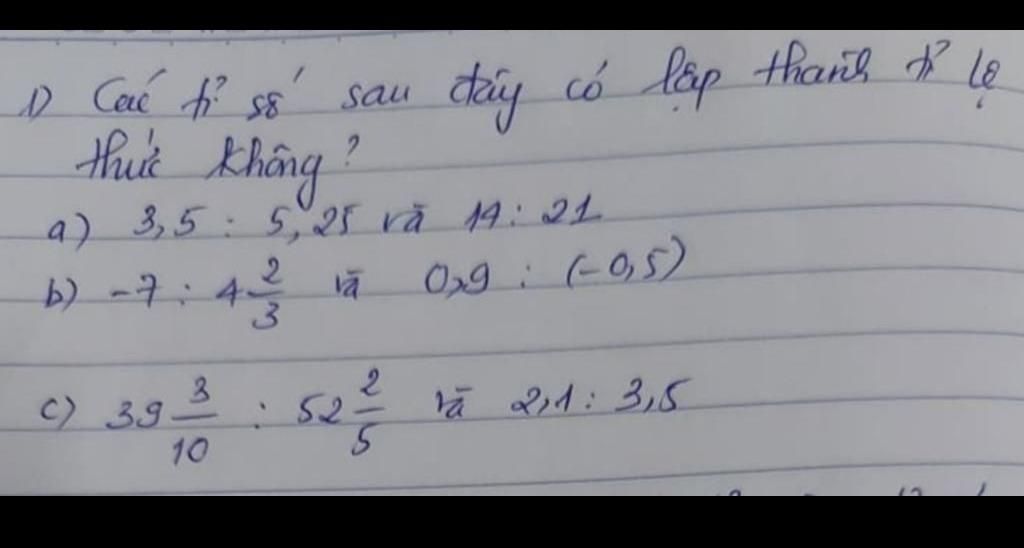 1) Các tỉ số sau đây có lập thành tỉ lệ
thức không?
a) 3,5 : 5,25 và 14 : 21
b) -7 : 4 2/3 và 0,9 : (-0,5)
c) 39 3/10 : 52 2/5 và 2,1 : 3,5